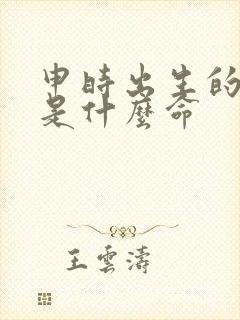 申時出生的
是什麼命
王雲濤